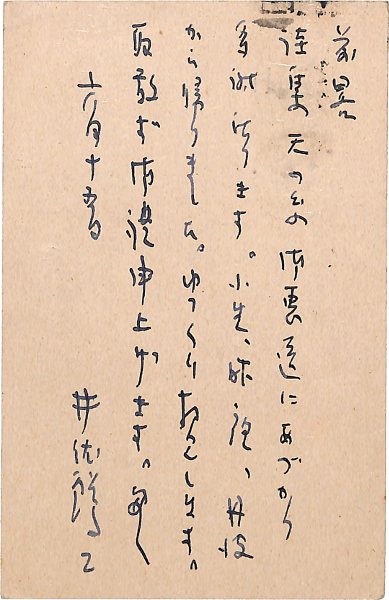 前畧
詩集天の御恵送にあづかり
多謝ります。小生、昨
から帰りました。ゆっくりおよみします。
取敢ず御禮申上げます。匆々
六月十五日
井伏鱒二